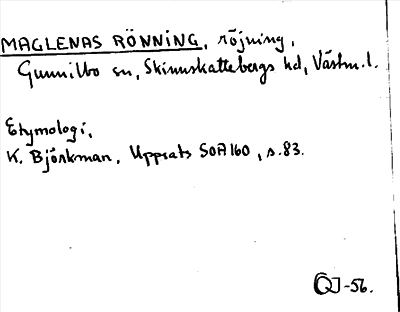 MAGLENAS RÖNNING, röjning,
Gunnilbo sn, Skinnskattebergs hd, Västm. l.
Etymologi,
K. Björkman, Uppsats SOA 160, s. 83.
OJ-56.